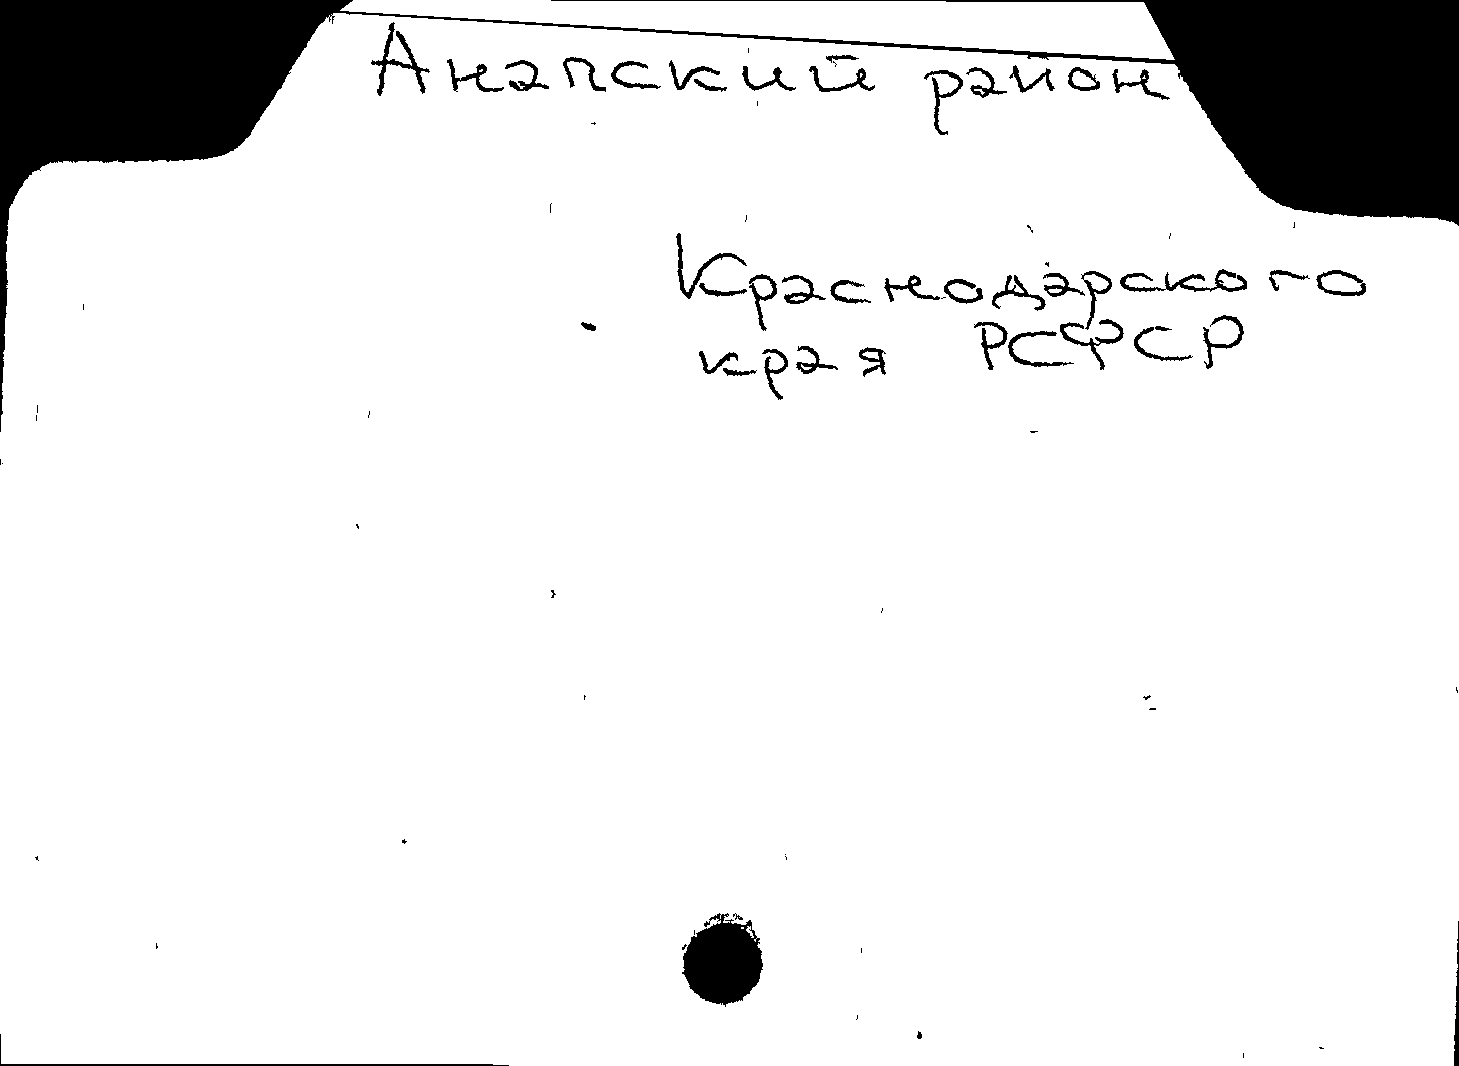 Анапский район
Краснодарского
края РСФСР